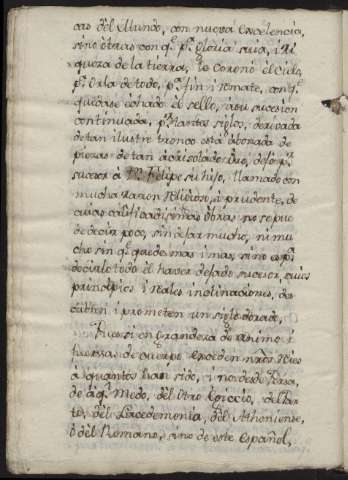 cas del Mundo, con nueva excelencia,
sino otras con q.e p.a gloria suia, i Ri
queza de la tierra, lo Coronó el Cielo,
p.r Orla de todo, p.a fin i remate, con q.e
quedase echado el sello, i a su sucesion
continuada, p.r tantos siglos, derivada
de tan ilustre tronco está abonada de
piezas de tan acrisolado Oro, dejó p.r
sucesor á D.n Felipe su hijo, llamado con
mucha razon Religioso, i prudente, de
cuias calificadisimas obras no se pue
de decir poco, sin dejar mucho, ni mu
cho sin q.e quede mas i mas, sino es p.r
decirlo todo el haver dejado sucesor, cuios
principios i reales inclinaciones, des
cubren i prometen un siglo dorado.
Pues si en grandeza de animo i
fuerzas de cuerpo exceden n.ros Reies
a quantos han sido, i no desde Persa,
de aq.l Medo, del otro Egipcio, del Par
to, del Lacedemonia, del Atheniense,
ó del Romano, sino de este Español,